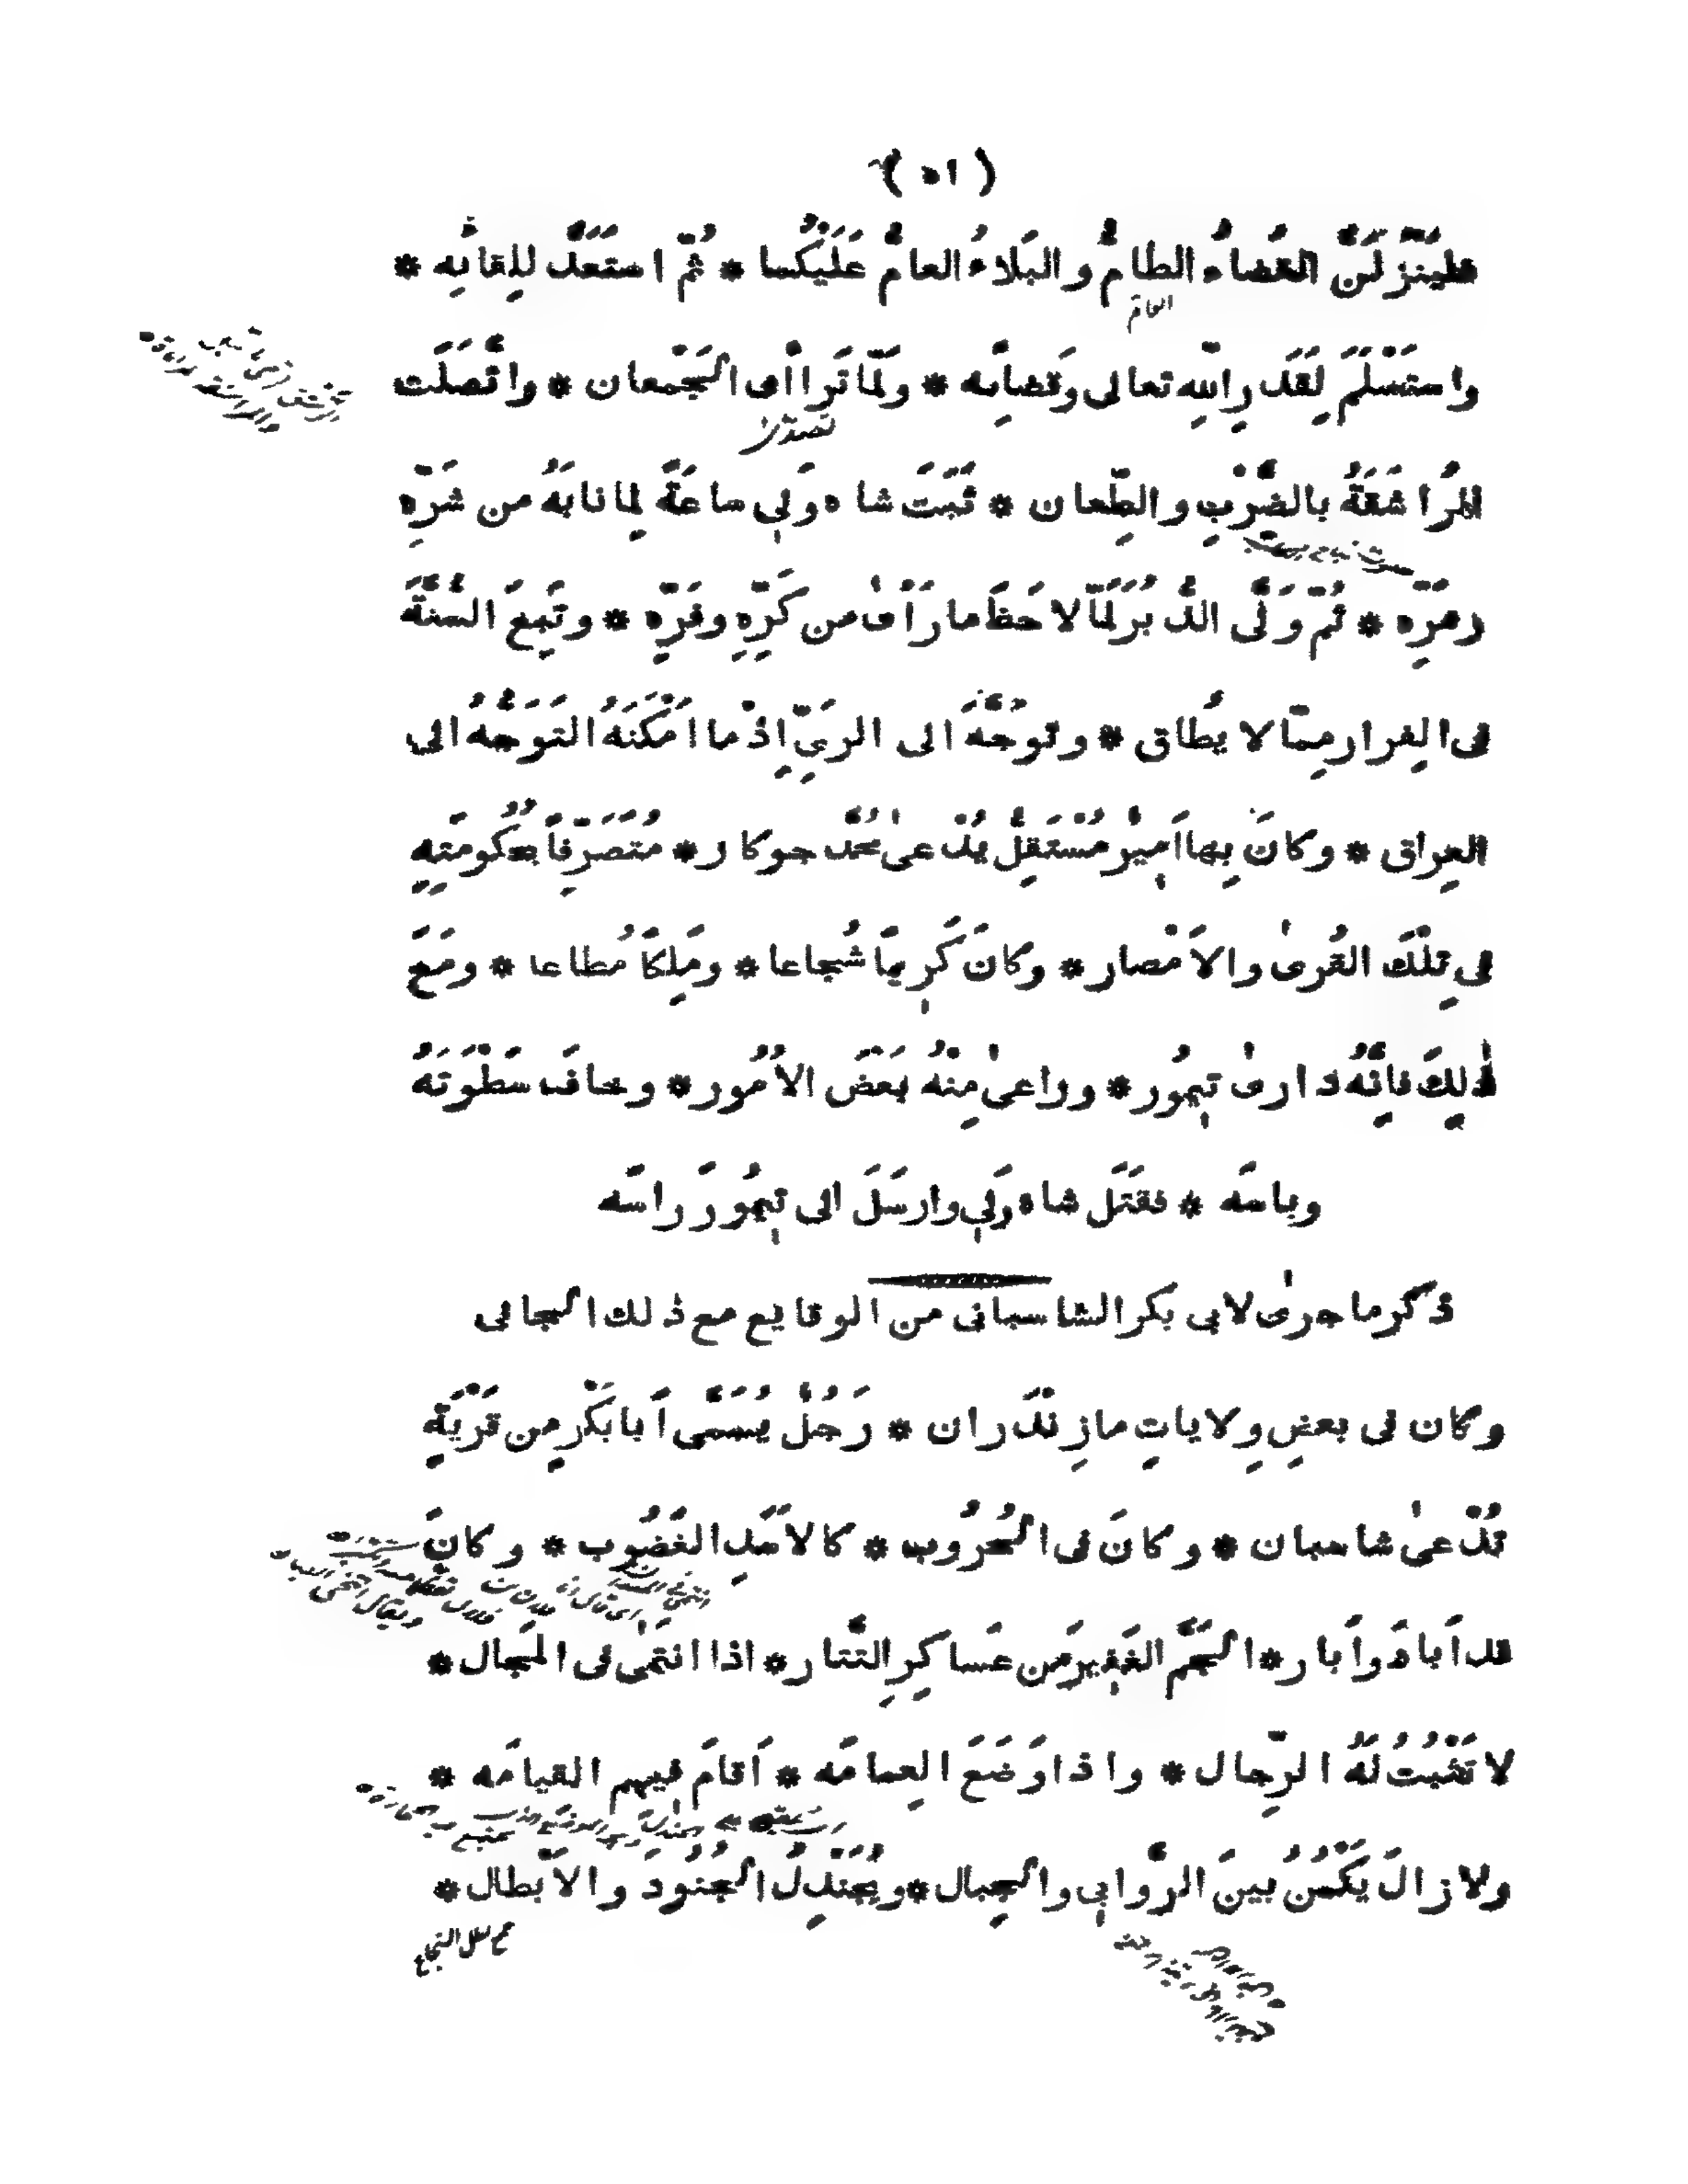 ( ٥١ )
فلينزلَنَّ القَضاءُ الطامُّ والبَلاءُ العامُّ عَلَيْكُما * ثُمَّ استَعَدَّ لِلِقائِه *
العام
واستَسْلَمَ لِقَدَرِ اللّهِ تعالى وقَضائِه * ولَمّا تَراأى الجَمْعان * واتَّصَلَت
المُراشَقَةُ بالضَّرْبِ والطِّعان * ثَبَتَ شاه وَلِي ساعَةً لِما نابَهُ من شَرِّه
وضَرِّه * ثُمَّ وَلَّى الدُّبُرَ لَمّا لاحَظَ ما رَأَى من كَرِّهِ وفَرِّه * وتَبِعَ السُّنَّةَ
فى الفِرارِ مِمّا لا يُطاق * وتَوَجَّهَ الى الرَيِّ اِذْ ما اَمْكَنَهُ التَوَجُّهُ الى
العِراق * وكانَ بِها اَمِيرٌ مُسْتَقِلٌّ يُدْعى مُحَمَّد جوكار * مُتَصَرِّفاً بحُكُومَتِهِ
فى تِلْكَ القُرى والاَمْصار * وكانَ كَرِيمًا شُجاعا * ومَلِكًا مُطاعا * ومَعَ
ذٰلِكَ فاِنَّهُ دارى تِيمُور * وراعى مِنْهُ بَعْضَ الاُمُور * وخافَ سَطْوَتَهُ
وباسَه * فقَتَل شاه وَلِي وارسَلَ الى تِيمُورَ راسَه
ذكر ما جرى لابى بكر الشاسبانى من الوقايع مع ذلك الجانى
وكان فى بعضِ وِلاياتِ مازِنْدَران * رَجُلٌ يُسَمَّى اَبا بَكْرٍ مِن قَرْيَةٍ
تُدْعى شاسبان * وكانَ فى الحُرُوب * كالاَسَدِ الغَضُوب * وكانَ
قد اَبادَ واَبار * الجَمَّ الغَفِيرَ مِن عَساكِرِ التَّتار * اذا انتَمى فى المَجال *
لا تَثْبُتُ لَهُ الرِّجال * واذا وَضَعَ العِمامَه * اَقامَ فِيهِم القيامَه *
ولا زالَ يَكْمُنُ بينَ الرَّوابِي والجِبال * ويُجَنْدِلُ الجُنُودَ والاَبْطال *